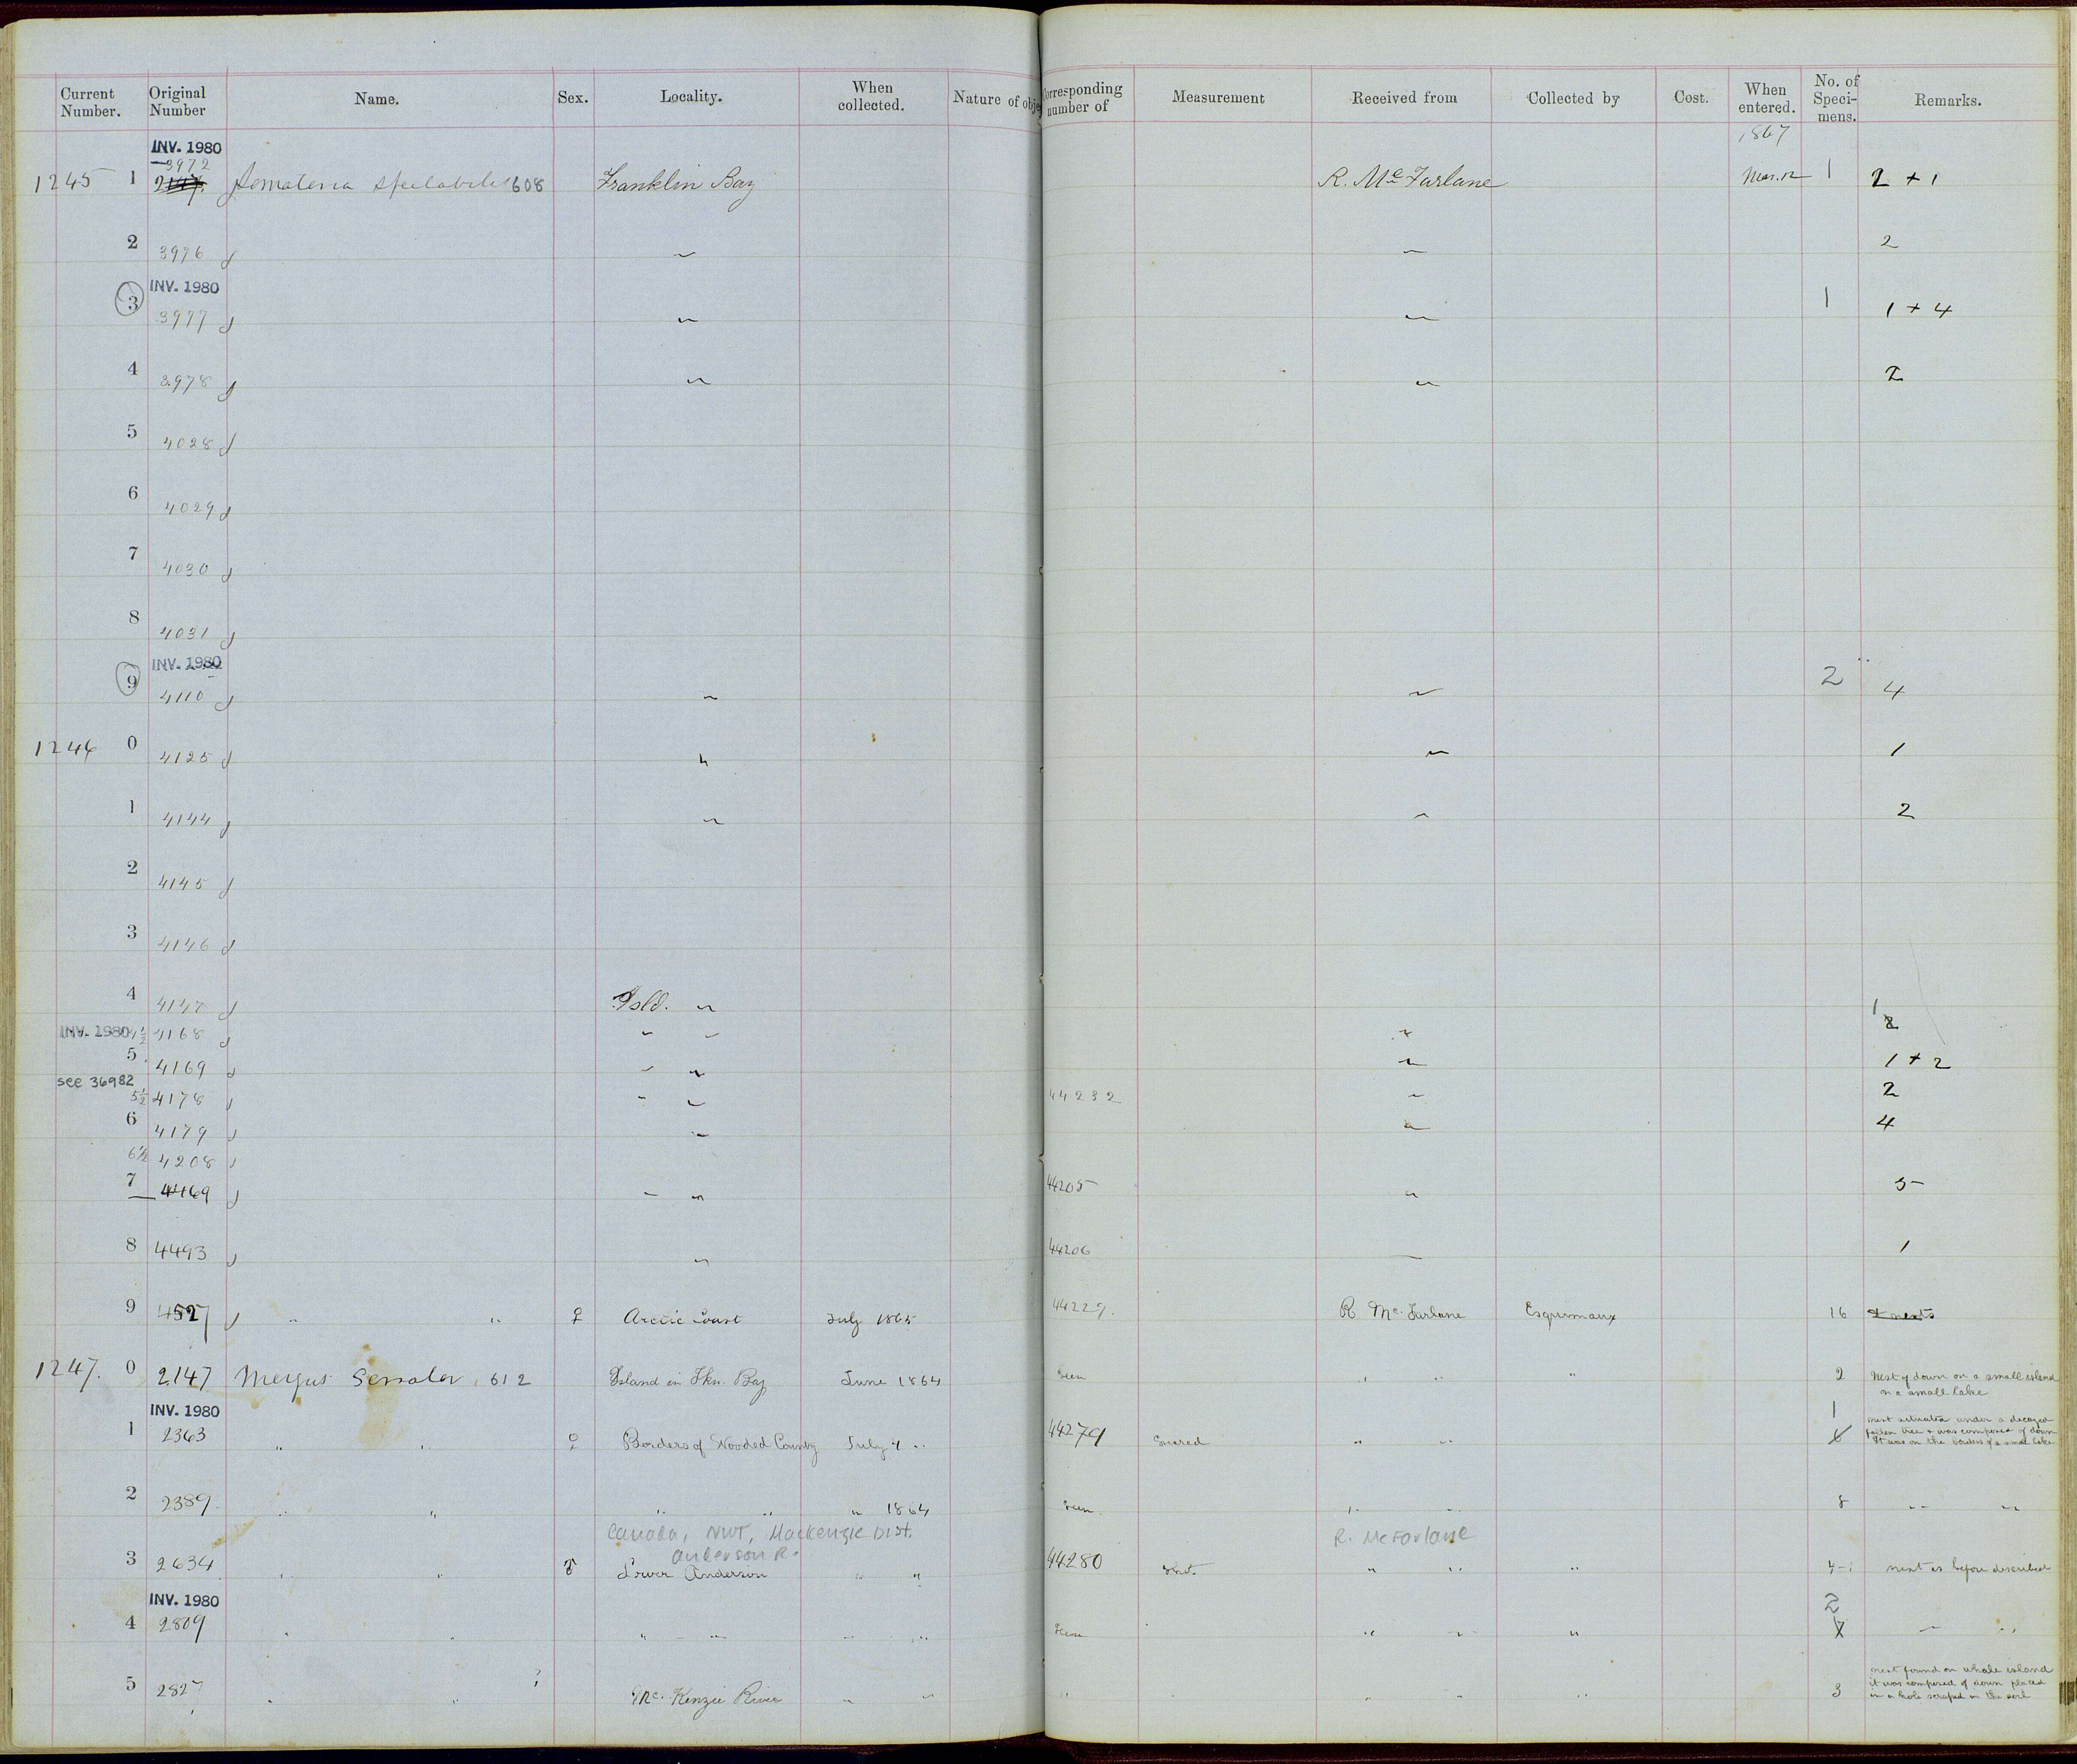 Current Number. Original Number Name. Sex. Locality. When collected. Nature of obje Corresponding number of Measurement Received from Collected by Cost. When entered. No. of Speci-mens. Remarks.
INV. 1980 1867
3972
1245 1 2147 Somateria spectabilis 608 Franklin Bay R. McFarlane Mar. 12 1 2 + 1
2 3976 2
INV. 1980
3 3977 1 1 + 4
4 3978 2
5 4028
6 4029
7 4030
8 4031
INV. 1980
9 4110 2 4
1246 0 4125 1
1 4144 2
2 4145
3 4146
4 4147 Isld.
INV. 1980 4½ 4168 1
5 4169 1 + 2
see 36982
5½ 4178 44232 2
6 4179 4
6½ 4208
7 4469 44205 5
8 4493 44206 1
9 4527 " " ♀ Arctic Coast July 1865 44229. R McFarlane Esquimaux 16 nests
1247. 0 2147 Mergus Serrator 612 Island in Fkn. Bay June 1864 Seen " " " 2 Nest of down on a small island
in a small lake
INV. 1980 1 nest situated under a decayed
1 2363 " " ♀ Borders of Wooded County July 4 " 44279 Snared " " 6 fallen tree & was composed of down
It was on the borders of a small lake
2 2389 " " " " " 1864 Seen " " 8 " "
Canada, NWT, Mackenzie Dist. R. McFarlane
Anderson R.
3 2634 " " Lower Anderson " " 44280 Shot " " " 4-1 nest as before described
INV. 1980 2
4 2809 " " " " " " Seen " " " 7 " "
nest found on whale island
5 2827 " " ? McKenzie River " " " " " " 3 it was composed of down placed
in a hole scraped in the soil